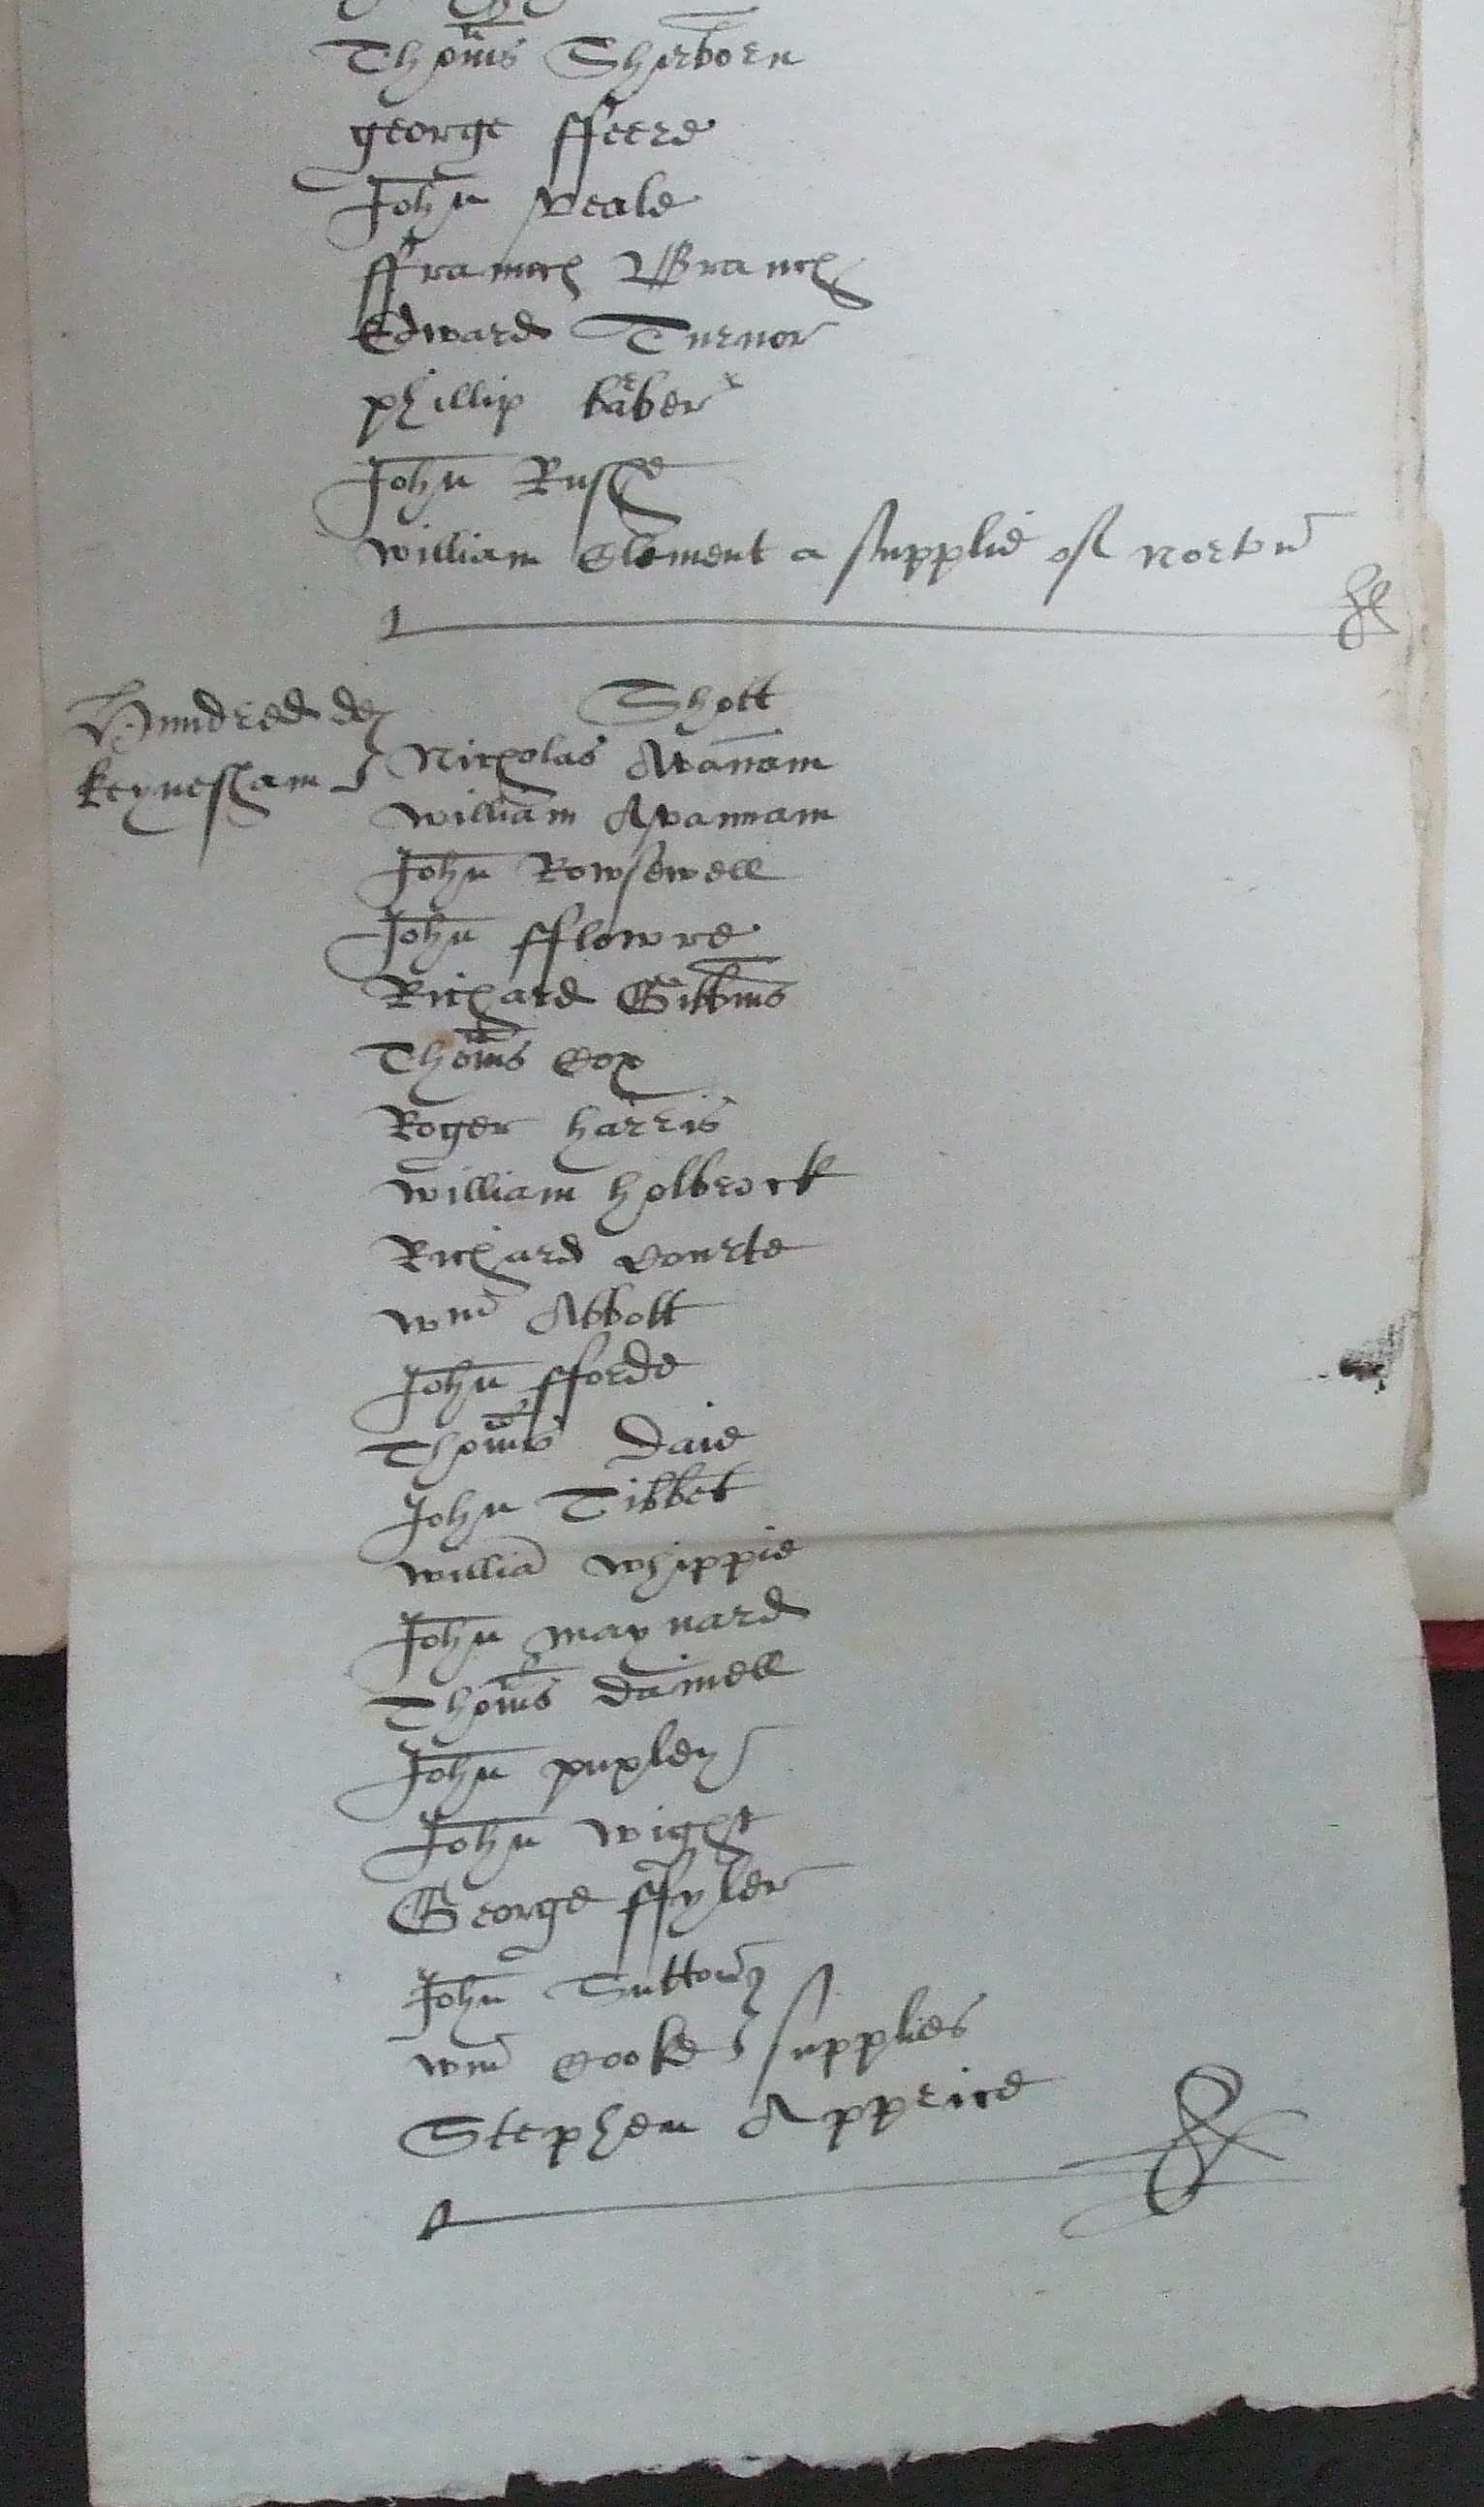 Thoms Sherborn
george ffeere
John Veale
ffraunces Branch
Edward Turnor
phillip barber
John Rushe
william Clement a supplie of Norton
Shott
Hundred de
keynesham
Nicholas Avanam
william Avannam
John Rowsewell
John fflowre
Richard Gibbins
Thoms Cox
Roger harris
william holbrock
Richard Courte
Wm Abbott
John fforde
Thoms Daie
John Tibbet
William Whippie
John maynard
Thoms Daniell
John puxley
John Wight
George ffyler
John Sutton
Wm Cooke supplies
Stephen Apprice